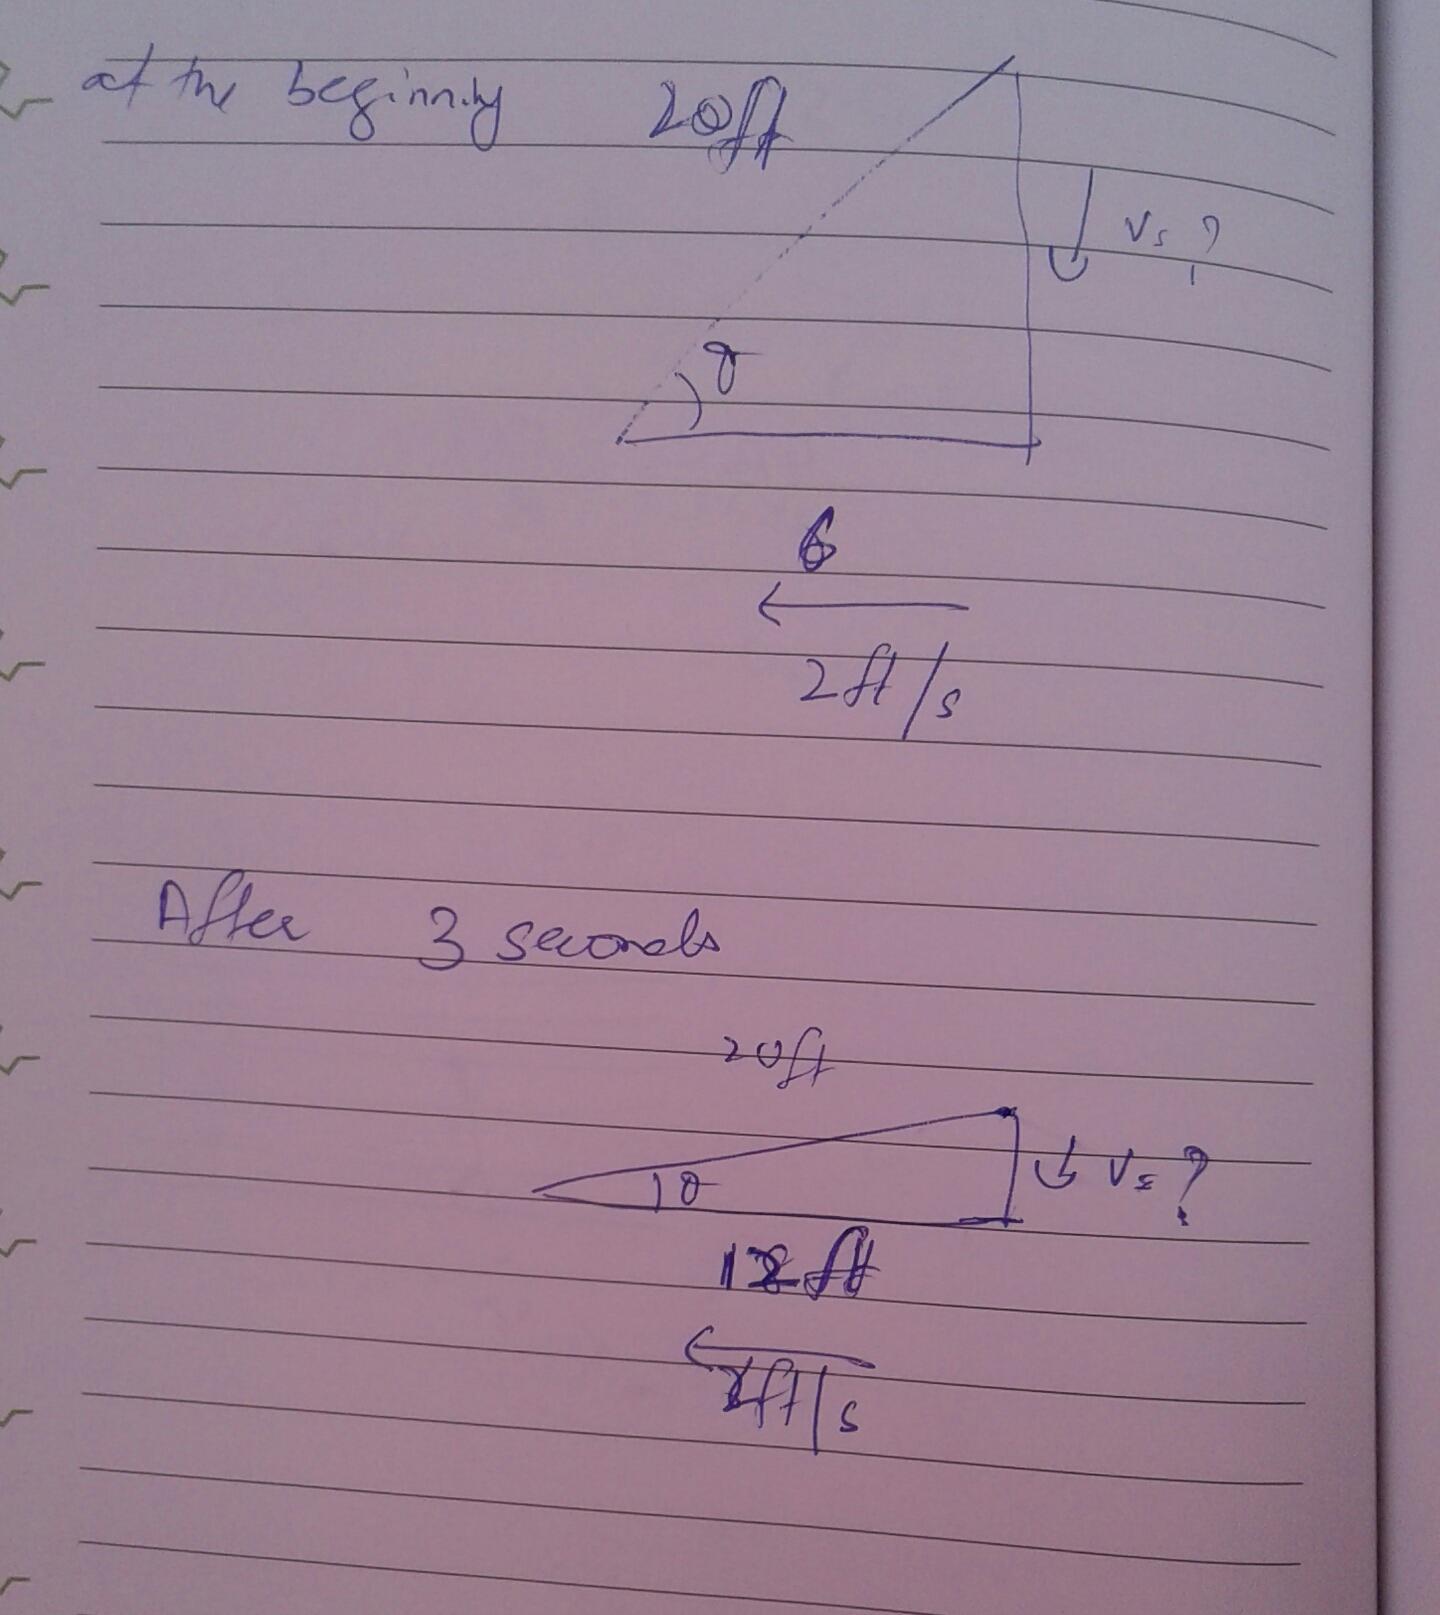 at the beginning 20ft
Vs ?
θ
6
2ft/s
After 3 seconds
20ft
θ
Vs ?
12 ft
2ft/s